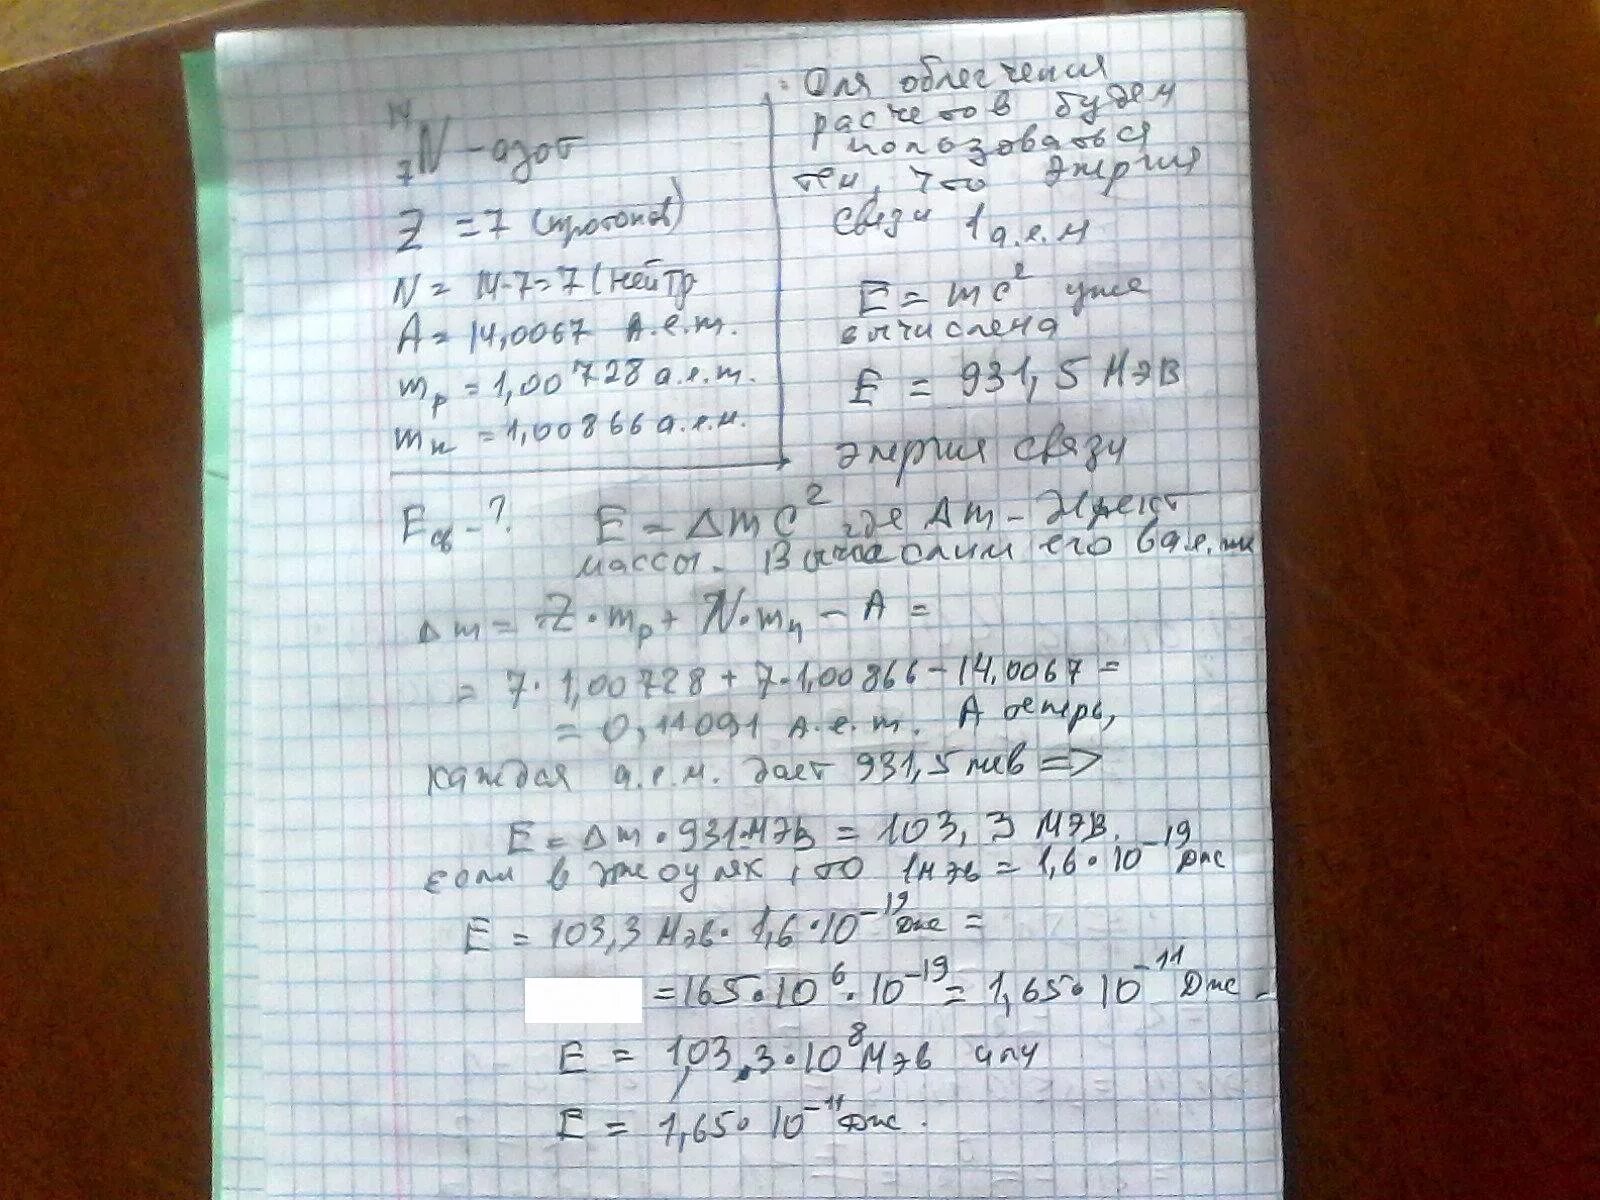 14
7 N - азот
Z = 7 (протонов)
N = 14-7=7 (нейтр
A = 14,0067 а.е.m.
mp = 1,00728 а.е.m.
mн = 1,00866 а.е.м.
Для облегчения
расчетов будем
пользоваться
тем, что энергия
связи 1 а.е.м
E = mc² уже
вычислена
E = 931,5 МэВ
энергия связи
Eсв - ?
E = Δmc² где Δm - дефект
массы. Вычислим его в а.е.m
Δm = Z·mp + N·mn - A =
= 7·1,00728 + 7·1,00866 - 14,0067 =
= 0,11091 а.е.m. А теперь,
каждая а.е.м. дает 931,5 мев =>
E = Δm·931·МэВ = 103,3 МэВ.
если в джоулях, то 1мэв = 1,6·10⁻¹⁹ Дж
E = 103,3 Мэв·1,6·10⁻¹⁹ Дж =
= 165·10⁶·10⁻¹⁹ = 1,65·10⁻¹¹ Дж -
E = 1,03,3·10⁸ Мэв или
E = 1,65·10⁻¹¹ Дж.